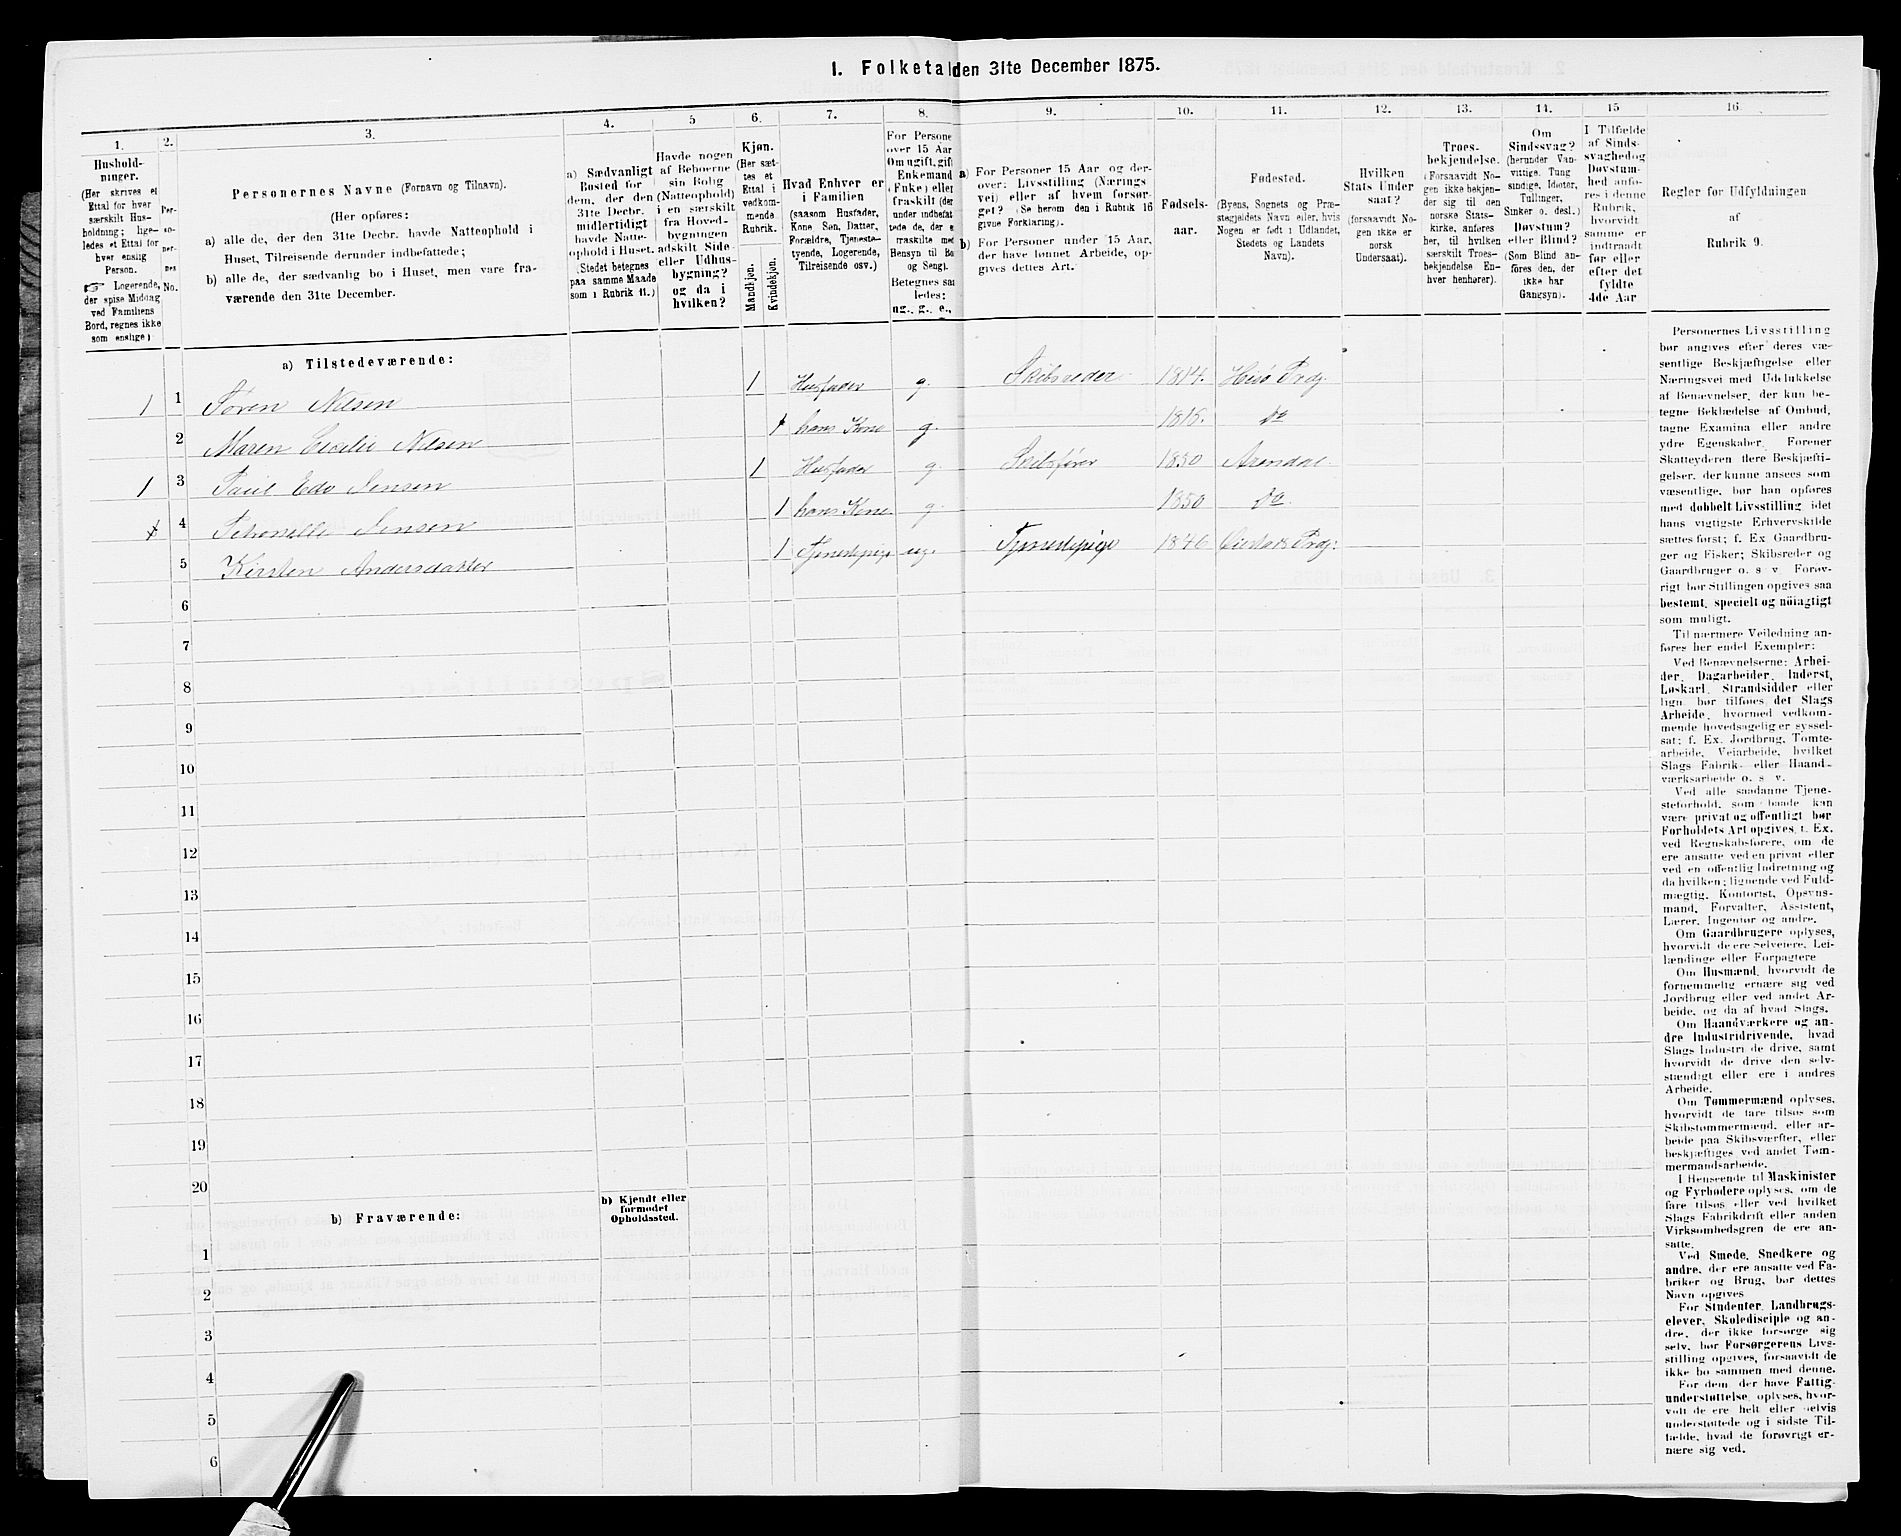 1. Folketal den 31te December 1875.
1. 2. 3. 4. 5 6. 7. 8. 9. 10. 11. 12. 13. 14. 15 16.
Hushold-
ninger.
(Her skrives et
Ettal for hver
særskilt Hus-
holdning; lige-
ledes et Ettal for
hver enslig
Person.
☞ Logerende,
der spise Middag
ved Familiens
Bord, regnes ikke
som enslige)
Per-
so-
ner-
nes
No.
Personernes Navne (Fornavn og Tilnavn).
(Her opføres:
a) alle de, der den 31te Decbr. havde Natteophold i
Huset, Tilreisende derunder indbefattede;
b) alle de, der sædvanlig bo i Huset, men vare fra-
værende den 31te December.
a) Sædvanligt
Bosted for
dem, der den
31te Decbr.
midlertidigt
havde Natte-
ophold i Huset.
(Stedet betegnes
paa samme Maade
som i Rubrik 11.)
Havde nogen
af Beboerne
sin Bolig
(Natteophold)
i en særskilt
fra Hoved-
bygningen
adskilt Side-
eller Udhus-
bygning?
og da i
hvilken?
Kjøn.
(Her sæt-
tes et
Ettal i
vedkom-
mende
Rubrik.
Mandkjøn.
Kvindekjøn.
Hvad Enhver er
i Familien
(saasom Husfader,
Kone Søn, Datter,
Forældre, Tjeneste-
tyende, Logerende,
Tilreisende osv.)
For Persone
over 15 Aar
Om ugift, gift
Enkemand
(Enke) eller
fraskilt (der
under indbefat
tede de, der e
fraskilte med
Hensyn til Bo
og Seng).
Betegnes saa
ledes:
ug., g., e.,
a) For Personer 15 Aar og der-
over: Livsstilling (Nærings
vei) eller af hvem forsør-
get? (Se herom den i Rubrik 16
givne Forklaring).
b) For Personer under 15 Aar,
der have lønnet Arbeide, op-
gives dettes Art.
Fødsels-
aar.
Fødested.
(Byens, Sognets og Præ-
stegjeldets Navn eller, hvis
Nogen er født i Udlandet,
Stedets og Landets
Navn).
Hvilken
Stats Under
saat?
(forsaavidt No-
gen ikke er
norsk
Undersaat).
Troes-
bekjendelse.
(Forsaavidt No-
gen ikke bekjen-
der sig til den
norske Stats-
kirke, anføres
her, til hvilken
særskilt Troes-
bekjendelse En-
hver henhører).
Om
Sindssvag?
(herunder Van-
vittige, Tung
sindige, Idioter,
Tullinger,
Sinker o. desl.)
Døvstum?
eller Blind?
(Som Blind an-
føres den, der
ikke har
Gangsyn).
I Tilfælde
af Sinds-
svaghed og
Døvstum-
hed anfø-
res i denne
Rubrik,
hvorvidt
samme er
indtraadt
før eller
efter det
fyldte
4de Aar
Regler for Udfyldningen
af
Rubrik 9.
a) Tilstedeværende:
1 1 Søren Nilsen 1 Husfader g. Skibsreder 1814. Hisø Prdg.
2 Maren Cecilie Nilsen 1 hans Kone g. 1815. do
1 3 Paul Edv Jensen 1 Husfader g. Skibsfører 1850 Arendal
4 Petronelle Jensen 1 hans Kone g. 1850 do
5 Kirsten Andersdatter 1 Tjenestepige ug. Tjenestepige 1846 Øiestads Prdg.
6
7
8
9
10
11
12
13
14
15
16
17
18
19
20
b) Fraværende:
b) Kjendt eller
formodet
Opholdssted.
1
2
3
4
5
6
Personernes Livsstilling
bør angives efter deres væ-
sentlige Beskjæftigelse eller
Næringsvei med Udelukkelse
af Benævnelser, der kun be-
tegne Beklædelse af Ombud,
tagne Examina eller andre
ydre Egenskaber. Forener
Skatteyderen flere Beskjæfti-
gelser, der kunne ansees som
væsentlige, bør han opføres
med dobbelt Livsstilling, idet
hans vigtigste Erhvervskilde
sættes først; f. Ex Gaardbru-
ger og Fisker; Skibsreder og
Gaardbruger o. s v Forøv-
rigt bør Stillingen opgives saa
bestemt, specielt og nöiagtigt
som muligt.
Til nærmere Veiledning an-
føres her endel Exempler:
Ved Benævnelserne: Arbei-
der, Dagarbeider, Inderst,
Løskarl, Strandsidder eller
lign. bør tilføies det Slags
Arbeide, hvormed vedkom-
mende hovedsagelig er syssel-
sat; f. Ex. Jordbrug, Tomte-
arbeide, Veiarbeide, hvilket
Slags Fabrik- eller Haand-
værksarbeide o. s v.
Ved alle saadanne Tjene-
steforhold, som baade kan
være privat og offentligt bør
Forholdets Art opgives, t. Ex.
ved Regnskabsførere, om de
ere ansatte ved en privat eller
ved en offentlig Indretning og
da hvilken; lignende ved Fuld-
mægtig, Kontorist, Opsyns-
mand, Forvalter, Assistent,
Lærer, Ingeniør og andre.
Om Gaardbrugere oplyses,
hvorvidt de ere Selveiere, Lei-
lændinge eller Forpagtere
Om Husmænd, hvorvidt de
fornemmelig ernære sig ved
Jordbrug eller ved andet Ar-
beide, og da af hvad Slags.
Om Haandværkere og an-
dre Industridrivende, hvad
Slags Industri de drive, samt
hvorvidt de drive den selv-
stændigt eller ere i andres
Arbeide.
Om Tømmermænd oplyses,
hvorvidt de fare tilsøs som
Skibstømmermænd, eller ar-
beide paa Skibsværfter, eller
beskjæftiges ved andet Tøm-
mermandsarbeide.
I Henseende til Maskinister
og Fyrbødere oplyses, om de
fare tilsøs eller ved hvilket
Slags Fabrikdrift eller anden
Virksomhedsgren de ere an-
satte.
Ved Smede, Snedkere og
andre, der ere ansatte ved Fa-
briker og Brug, bør dettes
Navn opgives
For Studenter, Landbrugs-
elever, Skoledisciple og an-
dre, der ikke forsørge sig
selv, bør Forsørgerens Livs-
stilling opgives, forsaavidt de
ikke bo sammen med denne.
For dem, der have Fattig-
understøttelse, oplyses, hvor-
vidt de ere helt eller delvis
understøttede og i sidste Til-
fælde, hvad de forøvrigt er-
nære sig ved.